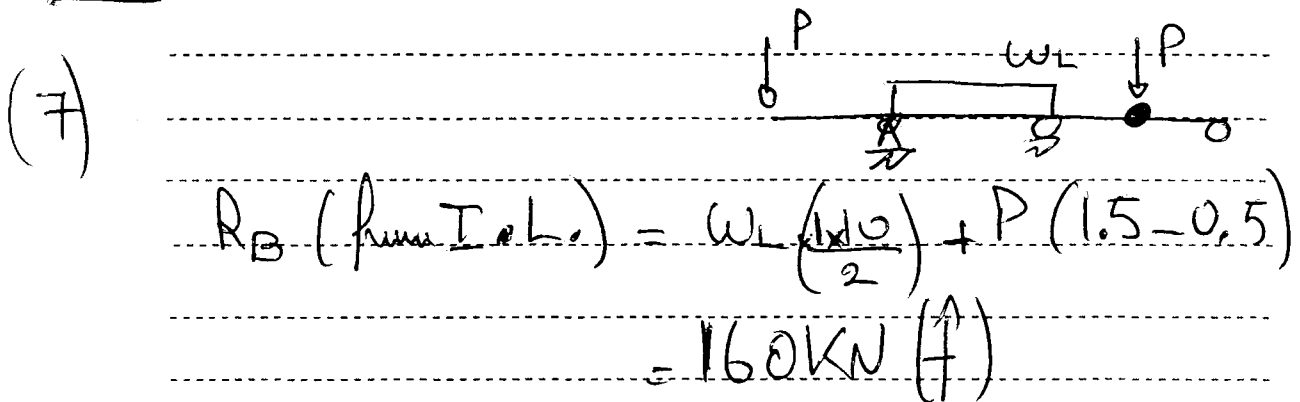 (7)
P P
WL
A
RB (from I.L.) = WL (1x10/2) + P (1.5-0.5)
= 160KN (↑)